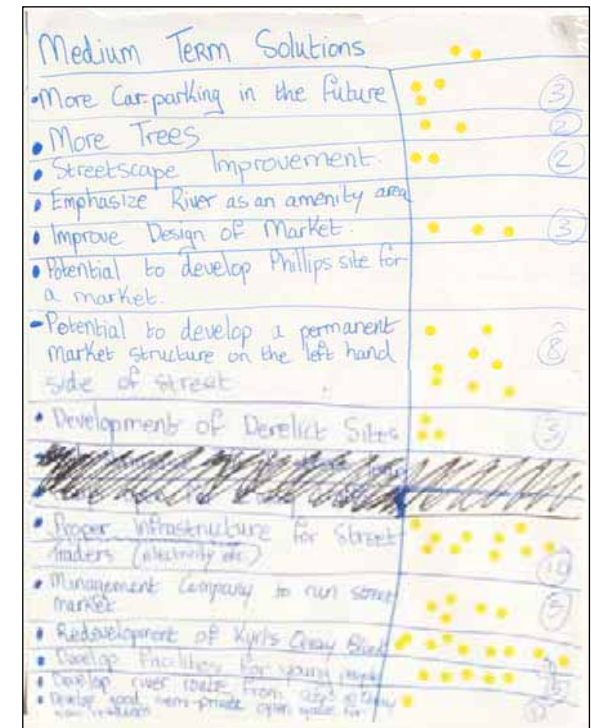 Medium Term Solutions
• More Car-parking in the future 3
• More Trees 2
• Streetscape Improvement. 2
• Emphasize River as an amenity area
• Improve Design of Market. 3
• Potential to develop Phillips site for
a market.
- Potential to develop a permanent
market structure on the left hand 8
side of street
• Development of Derelict Sites 3
• Proper Infrastructure for Street
traders (electricity etc.) 10
• Management Company to run street
market 5
• Redevelopment of Kyrls Quay Block
• Develop Facilities for young people
• Develop river route from
• Develop good semi-private open space